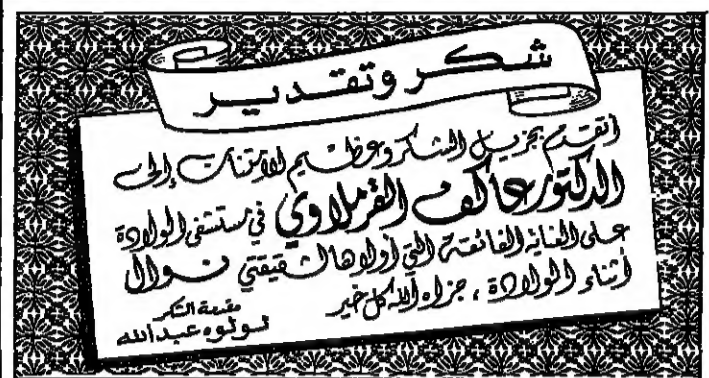 شكر وتقدير
أتقدم بجزيل الشكر وعظيم الامتنان إلى
الدكتور عاكف القرملاوي في مستشفى الولادة
على العناية الفائقة التي أولاها لشقيقتي نوال
أثناء الولادة ، جزاه الله كل خير
مقدمة الشكر
لولوه عبدالله